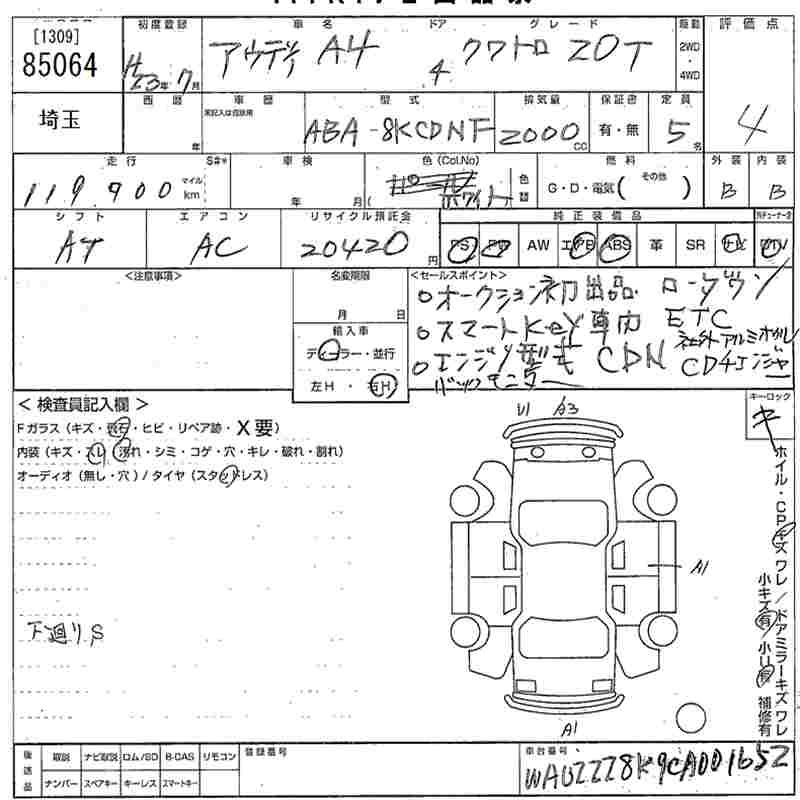 [1309]
85064
初度登録
H23年7月
車名
アウディ A4
ドア
4
グレード
クワトロ 2.0T
駆動
2WD
・
4WD
評価点
4
埼玉
西暦
年
車歴
未記入は自家用
型式
ABA-8KCDNF
排気量
2000 CC
保証書
有・無
定員
5名
走行
119,900
マイル
km
S#*
車検
年 月
色(Col.No)
ホワイト
色替
燃料
G・D・電気( その他 )
外装
B
内装
B
シフト
AT
エアコン
AC
リサイクル預託金
20420円
純正装備品
PS PW AW エアB ABS 革 SR ナビ TV
<注意事項>
名変期限
月 日
輸入車
ディーラー・並行
左H・右H
<セールスポイント>
○オークション初出品 ローダウン
○スマートKey車内 ETC
社外アルミホイル
○エンジン型式 CDN CD4チェンジャー
バックモニター
<検査員記入欄>
Fガラス(キズ・飛石・ヒビ・リペア跡・X要)
内装(キズ・スレ・汚れ・シミ・コゲ・穴・キレ・破れ・割れ)
オーディオ(無し・穴)/タイヤ(スタッドレス)
下廻りS
U1 A3
A1
A1
キーロック
キ
ホイル・CPキズ ワレ/ドアミラーキズ ワレ
小キズ有/小U有 補修有
後送品
取説 ナビ取説 ロム/SD B-CAS リモコン
ナンバー スペアキー キーレス スマートキー
登録番号
車台番号
WAUZZZ8K9CA001652